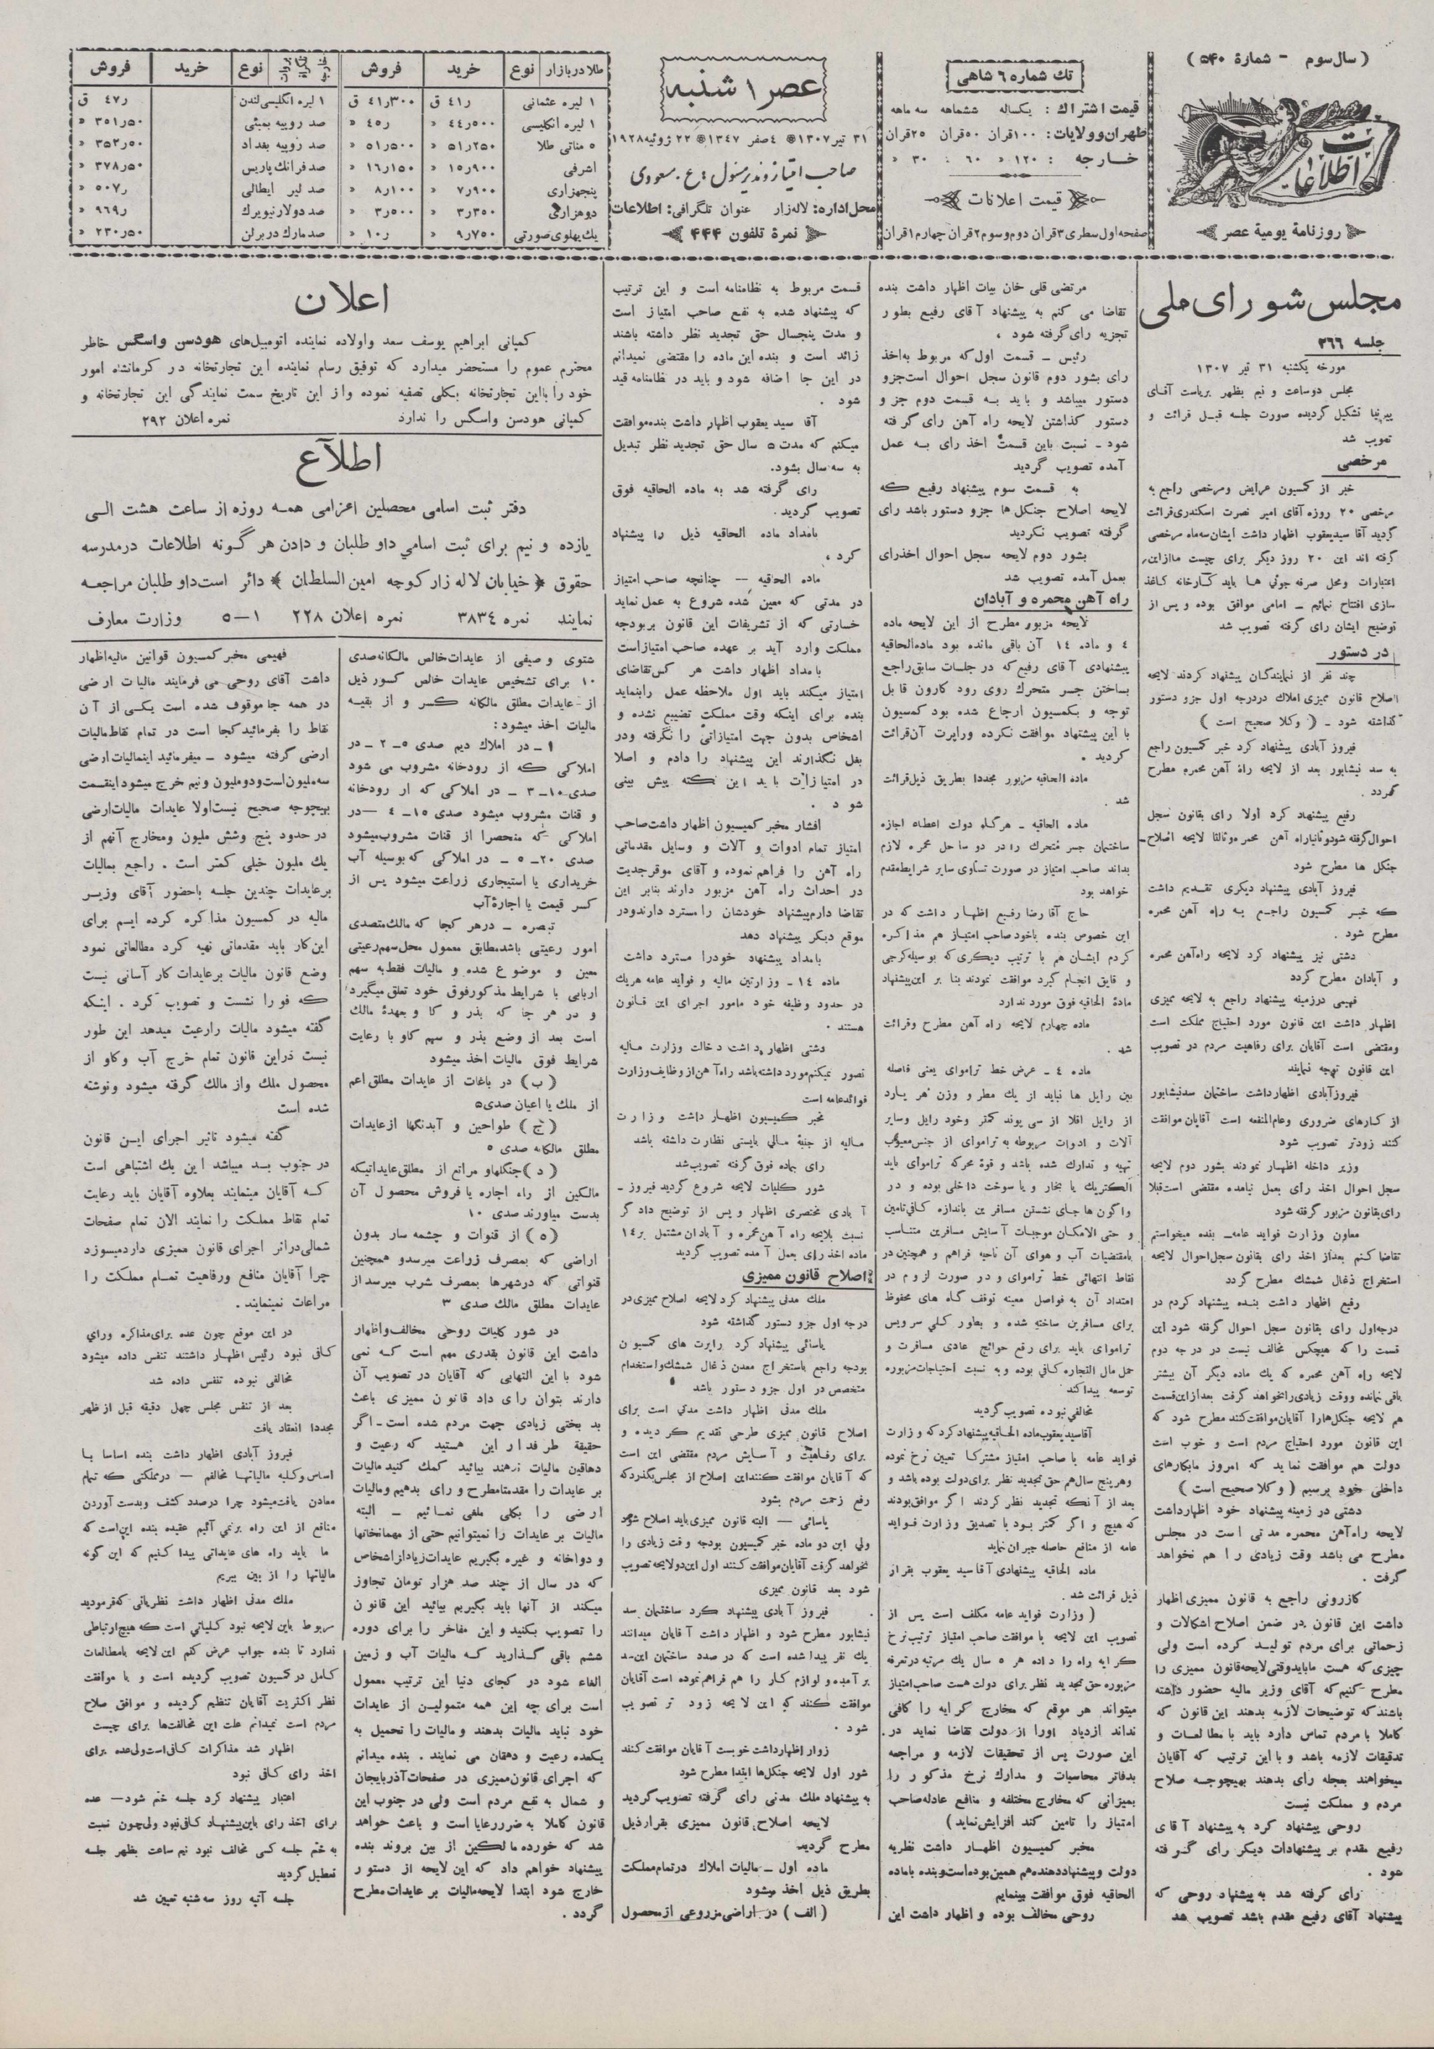 (سال سوم - شمارهٔ ۵۴۰)
اطلاعات
روزنامهٔ یومیهٔ عصر
تك شماره ۶ شاهی
قیمت اشتراك : یکساله ششماهه سه ماهه
طهران وولایات : ۱۰۰ قران ۵۰ قران ۲۵ قران
خارجه : ۱۲۰ « ۶۰ : ۳۰ «
قیمت اعلانات
صفحه اول سطری ۳ قران دوم و سوم ۲ قران چهارم ۱ قران
عصر ۱ شنبه
۳۱ تیر ۱۳۰۷ * ٤ صفر ۱۳٤۷ * ۲۲ ژوئیه ۱۹۲۸
صاحب امتیاز و مدیر مسئول : ع . مسعودی
محل اداره : لاله زار عنوان تلگرافی : اطلاعات
نمرهٔ تلفون ۴۴۴
طلا در بازار نوع خرید فروش
۱ لیره عثمانی ر۴۱ ق ۴۱ر۳۰۰ ق
۱ لیره انگلیسی ۴۴ر۵۰۰ « ر۴۵ «
۵ مناتی طلا ۵۱ر۲۵۰ « ۵۱ر۵۰۰ «
اشرفی ۱۵ر۹۰۰ « ۱۶ر۱۵۰ «
پنجهزاری ۷ر۹۰۰ « ۸ر۱۰۰ «
دوهزاری ۳ر۳۵۰ « ۳ر۵۰۰ «
یك پهلوی صورتی ۹ر۷۵۰ « ر۱۰ «
نوع خرید فروش
۱ لیره انگلیسی لندن ر۴۷ ق
صد روپیه بمبئی ۳۵۱ر۵۰ «
صد روپیه بغداد ۳۵۲ر۵۰ «
صد فرانك پاریس ۳۷۸ر۵۰ «
صد لیر ایطالی ر۵۰۷ «
صد دولار نیویرك ر۹۶۹ «
صد مارك در برلن ۲۳۰ر۵۰ «
مجلس شورای ملی
جلسه ۲۶۶
مورخه یکشنبه ۳۱ تیر ۱۳۰۷
مجلس دو ساعت و نیم بظهر بریاست آقای
پیرنیا تشکیل گردیده صورت جلسه قبل قرائت و
تصویب شد
مرخصی
خبر از کمسیون عرایض و مرخصی راجع به
مرخصی ۲۰ روزه آقای امیر نصرت اسکندری قرائت
گردید آقا سید یعقوب اظهار داشت ایشان سه ماه مرخصی
گرفته اند این ۲۰ روز دیگر برای چیست ما از این
اعتبارات و محل صرفه جوئی ها باید کارخانه کاغذ
سازی افتتاح نمائیم - امامی موافق بوده و پس از
توضیح ایشان رای گرفته تصویب شد
در دستور
چند نفر از نمایندگان پیشنهاد کردند لایحه
اصلاح قانون ممیزی املاك در درجه اول جزو دستور
گذاشته شود - ( وکلا صحیح است )
فیروز آبادی پیشنهاد کرد خبر کمسیون راجع
به سد نیشابور بعد از لایحه راه آهن محمره مطرح
گردد .
رفیع پیشنهاد کرد اولا رای بقانون سجل
احوال گرفته شود و ثانیا راه آهن محمره و ثالثا لایحه اصلاح
جنگل ها مطرح شود
فیروز آبادی پیشنهاد دیگری تقدیم داشت
که خبر کمسیون راجع به راه آهن محمره
مطرح شود .
دشتی نیز پیشنهاد کرد لایحه راه آهن محمره
و آبادان مطرح گردد
فهیمی در زمینه پیشنهاد راجع به لایحه ممیزی
اظهار داشت این قانون مورد احتیاج مملکت است
و مقتضی است آقایان برای رفاهیت مردم در تصویب
این قانون توجه نمایند
فیروز آبادی اظهار داشت ساختمان سد نیشابور
از کارهای ضروری و عام المنفعه است آقایان موافقت
کنند زودتر تصویب شود
وزیر داخله اظهار نمودند بشور دوم لایحه
سجل احوال اخذ رای بعمل نیامده مقتضی است قبلا
رای بقانون مزبور گرفته شود
معاون وزارت فواید عامه - بنده میخواستم
تقاضا کنم بعد از اخذ رای بقانون سجل احوال لایحه
استخراج ذغال شمشك مطرح گردد
رفیع اظهار داشت بنده پیشنهاد کردم در
درجه اول رای بقانون سجل احوال گرفته شود این
قسمت را که هیچکس مخالف نیست در درجه دوم
لایحه راه آهن محمره که یك ماده دیگر آن بیشتر
باقی نمانده و وقت زیادی را نخواهد گرفت بعد از این قسمت
هم لایحه جنگل ها را آقایان موافقت کنند مطرح شود که
این قانون مورد احتیاج مردم است و خوب است
دولت هم موافقت نماید که امروز ما بکارهای
داخلی خود برسیم ( وکلا صحیح است )
دشتی در زمینه پیشنهاد خود اظهار داشت
لایحه راه آهن محمره مدتی است در مجلس
مطرح می باشد وقت زیادی را هم نخواهد
گرفت .
کازرونی راجع به قانون ممیزی اظهار
داشت این قانون در ضمن اصلاح اشکالات و
زحماتی برای مردم تولید کرده است ولی
چیزی که هست ما باید وقتی لایحه قانون ممیزی را
مطرح کنیم که آقای وزیر مالیه حضور داشته
باشند که توضیحات لازمه بدهند این قانون که
کاملا با مردم تماس دارد باید با مطالعات و
تدقیقات لازمه باشد و با این ترتیب که آقایان
میخواهند بعجله رای بدهند بهیچوجه صلاح
مردم و مملکت نیست
روحی پیشنهاد کرد به پیشنهاد آقای
رفیع مقدم بر پیشنهادات دیگر رای گرفته
شود .
رای گرفته شد به پیشنهاد روحی که
پیشنهاد آقای رفیع مقدم باشد تصویب شد
مرتضی قلی خان بیات اظهار داشت بنده
تقاضا می کنم به پیشنهاد آقای رفیع بطور
تجزیه رای گرفته شود .
رئیس - قسمت اول که مربوط به اخذ
رای بشور دوم قانون سجل احوال است جزو
دستور میباشد و باید به قسمت دوم جزو
دستور گذاشتن لایحه راه آهن رای گرفته
شود - نسبت باین قسمت اخذ رای به عمل
آمده تصویب گردید
به قسمت سوم پیشنهاد رفیع که
لایحه اصلاح جنگل ها جزو دستور باشد رای
گرفته تصویب نگردید
بشور دوم لایحه سجل احوال اخذ رای
بعمل آمده تصویب شد
راه آهن محمره و آبادان
لایحه مزبور مطرح از این لایحه ماده
٤ و ماده ۱٤ آن باقی مانده بود ماده الحاقیه
پیشنهادی آقای رفیع که در جلسات سابق راجع
بساختن جسر متحرك روی رود کارون قابل
توجه و بکمسیون ارجاع شده بود کمسیون
با این پیشنهاد موافقت نکرده و راپرت آن قرائت
گردید .
ماده الحاقیه مزبور مجددا بطریق ذیل قرائت
شد .
ماده الحاقیه - هرگاه دولت اعطاء اجازه
ساختمان جسر متحرك را در دو ساحل محمره لازم
بداند صاحب امتیاز در صورت تساوی سایر شرایط مقدم
خواهد بود
حاج آقا رضا رفیع اظهار داشت که در
این خصوص بنده با خود صاحب امتیاز هم مذاکره
کردم ایشان هم با ترتیب دیگری که بوسیله کرجی
و قایق انجام گیرد موافقت نمودند بنا بر این پیشنهاد
مادهٔ الحاقیه فوق مورد ندارد
ماده چهارم لایحه راه آهن مطرح و قرائت
شد .
ماده ٤ - عرض خط تراموای یعنی فاصله
بین رایل ها نباید از یك مطر و وزن هر یارد
از رایل اقلا از سی پوند کمتر و خود رایل و سایر
آلات و ادوات مربوطه به تراموای از جنس معیوب
تهیه و تدارك شده باشد و قوهٔ محرکه تراموای باید
الکتریك یا بخار و یا سوخت داخلی بوده و در
واگون ها جای نشستن مسافرین باندازه کافی تامین
و حتی الامکان موجبات آسایش مسافرین متناسب
با مقتضیات آب و هوای آن ناحیه فراهم و همچنین در
نقاط انتهائی خط تراموای و در صورت لزوم در
امتداد آن به فواصل معینه توقف گاه های محفوظ
برای مسافرین ساخته شده و بطور کلی سرویس
تراموای باید برای رفع حوائج عادی مسافرت و
حمل مال التجاره کافی بوده و به نسبت احتیاجات مزبوره
توسعه پیدا کند
مخالفی نبوده تصویب گردید
آقا سید یعقوب ماده الحاقیه پیشنهاد کرد که وزارت
فواید عامه با صاحب امتیاز مشترکا تعیین نرخ نموده
و هر پنج سال هم حق تجدید نظر برای دولت بوده باشد و
بعد از آنکه تجدید نظر کردند اگر موافق بودند
که هیچ و اگر کمتر بود با تصدیق وزارت فواید
عامه از منافع حاصله جبران نماید
ماده الحاقیه پیشنهادی آقا سید یعقوب بقرار
ذیل قرائت شد .
( وزارت فواید عامه مکلف است پس از
تصویب این لایحه با موافقت صاحب امتیاز ترتیب نرخ
کرایه راه را داده هر ۵ سال یك مرتبه در تعرفه
مزبوره حق تجدید نظر برای دولت هست صاحب امتیاز
میتواند هر موقع که مخارج کرایه را کافی
نداند ازدیاد آنرا از دولت تقاضا نماید در
این صورت پس از تحقیقات لازمه و مراجعه
بدفاتر محاسبات و مدارك نرخ مذکور را
بمیزانی که مخارج مختلفه و منافع عادله صاحب
امتیاز را تامین کند افزایش نماید )
مخبر کمیسیون اظهار داشت نظریه
دولت و پیشنهاد دهنده هم همین بوده است و بنده با ماده
الحاقیه فوق موافقت بینمایم
روحی مخالف بوده و اظهار داشت این
قسمت مربوط به نظامنامه است و این ترتیب
که پیشنهاد شده به نفع صاحب امتیاز است
و مدت پنجسال حق تجدید نظر داشته باشند
زائد است و بنده این ماده را مقتضی نمیدانم
در این جا اضافه شود و باید در نظامنامه قید
شود .
آقا سید یعقوب اظهار داشت بنده موافقت
میکنم که مدت ۵ سال حق تجدید نظر تبدیل
به سه سال بشود.
رای گرفته شد به ماده الحاقیه فوق
تصویب گردید .
بامداد ماده الحاقیه ذیل را پیشنهاد
کرد .
ماده الحاقیه - چنانچه صاحب امتیاز
در مدتی که معین شده شروع به عمل نماید
خسارتی که از تشریفات این قانون بر بودجه
مملکت وارد آید بر عهده صاحب امتیاز است
بامداد اظهار داشت هر کس تقاضای
امتیاز میکند باید اول ملاحظه عمل را بنماید
بنده برای اینکه وقت مملکت تضییع نشده و
اشخاص بدون جهت امتیازاتی را نگرفته و در
بغل نگذارند این پیشنهاد را دادم و اصلا
در امتیازات باید این نکته پیش بینی
شود .
افشار مخبر کمیسیون اظهار داشت صاحب
امتیاز تمام ادوات و آلات و وسایل مقدماتی
راه آهن را فراهم نموده و آقای موقر جدیت
در احداث راه آهن مزبور دارند بنابر این
تقاضا دارم پیشنهاد خودشان را مسترد دارند و در
موقع دیگر پیشنهاد دهد
بامداد پیشنهاد خود را مسترد داشت
ماده ۱٤ - وزارتین مالیه و فواید عامه هر یك
در حدود وظیفه خود مامور اجرای این قانون
هستند .
دشتی اظهار داشت دخالت وزارت مالیه
تصور نمیکنم مورد داشته باشد راه آهن از وظایف وزارت
فوائد عامه است
مخبر کمیسیون اظهار داشت وزارت
مالیه از جنبهٔ مالی بایستی نظارت داشته باشد
رای بماده فوق گرفته تصویب شد
شور کلیات لایحه شروع گردید فیروز -
آبادی مختصری اظهار و پس از توضیح دادگر
نسبت بلایحه راه آهن محمره و آبادان مشتمل بر ۱٤
ماده اخذ رای بعمل آمده تصویب گردید
اصلاح قانون ممیزی
ملك مدنی پیشنهاد کرد لایحه اصلاح ممیزی در
درجه اول جزو دستور گذاشته شود
یاسائی پیشنهاد کرد راپرت های کمسیون
بودجه راجع باستخراج معدن ذغال شمشك و استخدام
متخصص در اول جزو دستور باشد
ملك مدنی اظهار داشت مدتی است برای
اصلاح قانون ممیزی طرحی تقدیم کردیده و
برای رفاهیت و آسایش مردم مقتضی این است
که آقایان موافقت کنند این اصلاح از مجلس بگذرد که
رفع زحمت مردم بشود
یاسائی - البته قانون ممیزی باید اصلاح شود
ولی این دو ماده خبر کمیسیون بودجه وقت زیادی را
نخواهد گرفت آقایان موافقت کنند اول این دو لایحه تصویب
شود بعد قانون ممیزی
فیروز آبادی پیشنهاد کرد ساختمان سد
نیشابور مطرح شود و اظهار داشت آقایان میدانند
یك نفر پیدا شده است که در صدد ساختمان این سد
بر آمده و لوازم کار را هم فراهم نموده است آقایان
موافقت کنند که این لایحه زودتر تصویب
شود .
زوار اظهار داشت خوبست آقایان موافقت کنند
شور اول لایحه جنگل ها ابتدا مطرح شود
به پیشنهاد ملك مدنی رای گرفته تصویب گردید
لایحه اصلاح قانون ممیزی بقرار ذیل
مطرح گردید
ماده اول - مالیات املاك در تمام مملکت
بطریق ذیل اخذ میشود
( الف ) در اراضی مزروعی از محصول
اعلان
کمپانی ابراهیم یوسف سعد و اولاده نماینده اتومبیل های هودسن و اسگس خاطر
محترم عموم را مستحضر میدارد که توفیق رسام نماینده این تجارتخانه در کرمانشاه امور
خود را با این تجارتخانه بکلی تصفیه نموده و از این تاریخ سمت نمایندگی این تجارتخانه و
کمپانی هودسن و اسگس را ندارد نمره اعلان ۲۹۲
اطلاع
دفتر ثبت اسامی محصلین اعزامی همه روزه از ساعت هشت الی
یازده و نیم برای ثبت اسامی داوطلبان و دادن هر گونه اطلاعات در مدرسه
حقوق ( خیابان لاله زار کوچه امین السلطان ) دائر است داوطلبان مراجعه
نمایند نمره ۳۸۳٤ نمره اعلان ۲۲۸ ۱-۵ وزارت معارف
شتوی و صیفی از عایدات خالص مالکانه صدی
۱۰ برای تشخیص عایدات خالص کسور ذیل
از عایدات مطلق مالکانه کسر و از بقیه
مالیات اخذ میشود :
۱ - در املاك دیم صدی ۵ - ۲ - در
املاکی که از رودخانه مشروب می شود
صدی ۱۰ - ۳ - در املاکی که از رودخانه
و قنات مشروب میشود صدی ۱۵ - ٤ - در
املاکی که منحصرا از قنات مشروب میشود
صدی ۲۰ - ۵ - در املاکی که بوسیله آب
خریداری یا استیجاری زراعت میشود پس از
کسر قیمت یا اجارهٔ آب
تبصره - در هر کجا که مالك متصدی
امور رعیتی باشد مطابق معمول محل سهم رعیتی
معین و موضوع شده و مالیات فقط به سهم
اربابی با شرایط مذکور فوق خود تعلق میگیرد
و در هر جا که بذر و گاو بعهدهٔ مالك
است بعد از وضع بذر و سهم گاو با رعایت
شرایط فوق مالیات اخذ میشود
( ب ) در باغات از عایدات مطلق اعم
از ملك یا اعیان صدی ۵
( ج ) طواحین و آبدنگها از عایدات
مطلق مالکانه صدی ۵
( د ) جنگلها و مراتع از مطلق عایداتیکه
مالکین از راه اجاره یا فروش محصول آن
بدست میاورند صدی ۱۰
( ه ) از قنوات و چشمه سار بدون
اراضی که بمصرف زراعت میرسد و همچنین
قنواتی که در شهرها بمصرف شرب میرسد از
عایدات مطلق مالك صدی ۳
در شور کلیات روحی مخالف و اظهار
داشت این قانون بقدری مهم است که نمی
شود با این التهابی که آقایان در تصویب آن
دارند بتوان رای داد قانون ممیزی باعث
بد بختی زیادی جهت مردم شده است - اگر
حقیقة طرفدار این هستید که رعیت و
دهاقین مالیات ندهند بیائید کمك کنید مالیات
بر عایدات را مقدمتا مطرح و رای بدهیم و مالیات
ارضی را بکلی ملغی نمائیم - البته
مالیات بر عایدات را نمیتوانیم حتی از مهمانخانها
و دواخانه و غیره بگیریم عایدات زیاد از اشخاص
که در سال از چند صد هزار تومان تجاوز
میکند از آنها باید بگیریم بیائید این قانون
را تصویب بکنید و این مفاخر را برای دوره
ششم باقی گذارید که مالیات آب و زمین
الغاء شود در کجای دنیا این ترتیب معمول
است برای چه این همه متمولین از عایدات
خود نباید مالیات بدهند و مالیات را تحمیل به
یکعده رعیت و دهقان می نمایند . بنده میدانم
که اجرای قانون ممیزی در صفحات آذربایجان
و شمال به نفع مردم است ولی در جنوب این
قانون کاملا به ضرر رعایا است و باعث خواهد
شد که خورده مالکین از بین بروند بنده
پیشنهاد خواهم داد که این لایحه از دستور
خارج شود ابتدا لایحه مالیات بر عایدات مطرح
گردد .
فهیمی مخبر کمسیون قوانین مالیه اظهار
داشت آقای روحی می فرمایند مالیات ارضی
در همه جا موقوف شده است یکی از آن
نقاط را بفرمائید کجا است در تمام نقاط مالیات
ارضی گرفته میشود - میفرمائید اینمالیات ارضی
سه ملیون است و دو ملیون و نیم خرج میشود اینقسمت
بهیچوجه صحیح نیست اولا عایدات مالیات ارضی
در حدود پنج وشش ملیون و مخارج آنهم از
یك ملیون خیلی کمتر است . راجع بمالیات
بر عایدات چندین جلسه با حضور آقای وزیر
مالیه در کمسیون مذاکره کرده ایم برای
این کار باید مقدماتی تهیه کرد مطالعاتی نمود
وضع قانون مالیات بر عایدات کار آسانی نیست
که فورا نشست و تصویب کرد . اینکه
گفته میشود مالیات را رعیت میدهد این طور
نیست در این قانون تمام خرج آب و گاو از
محصول ملك و از مالك گرفته میشود و نوشته
شده است
گفته میشود تاثیر اجرای این قانون
در جنوب بد میباشد این یك اشتباهی است
که آقایان مینمایند بعلاوه آقایان باید رعایت
تمام نقاط مملکت را نمایند الان تمام صفحات
شمالی در اثر اجرای قانون ممیزی دارد میسوزد
چرا آقایان منافع و رفاهیت تمام مملکت را
مراعات نمینمایند .
در این موقع چون عده برای مذاکره و رای
کافی نبود رئیس اظهار داشتند تنفس داده میشود
مخالفی نبوده تنفس داده شد
بعد از تنفس مجلس چهل دقیقه قبل از ظهر
مجددا انعقاد یافت
فیروز آبادی اظهار داشت بنده اساسا با
اساس و کلیه مالیاتها مخالفم - در مملکتی که تمام
معادن یافت میشود چرا در صدد کشف و بدست آوردن
منافع از این راه بر نمی آئیم عقیده بنده این است که
ما باید راه های عایداتی پیدا کنیم که این گونه
مالیاتها را از بین ببریم
ملك مدنی اظهار داشت نظریاتی که فرمودید
مربوط باین لایحه نبود کلیاتی است که هیچ ارتباطی
ندارد تا بنده جواب عرض کنم این لایحه با مطالعات
کامل در کمسیون تصویب گردیده است و با موافقت
نظر اکثریت آقایان تنظیم گردیده و موافق صلاح
مردم است نمیدانم علت این مخالفت ها برای چیست
اظهار شد مذاکرات کافی است ولی عده برای
اخذ رای کافی نبود
اعتبار پیشنهاد کرد جلسه ختم شود - عده
برای اخذ رای باین پیشنهاد کافی نبود ولی چون نسبت
به ختم جلسه کسی مخالف نبود نیم ساعت بظهر جلسه
تعطیل گردید
جلسه آتیه روز سه شنبه تعیین شد